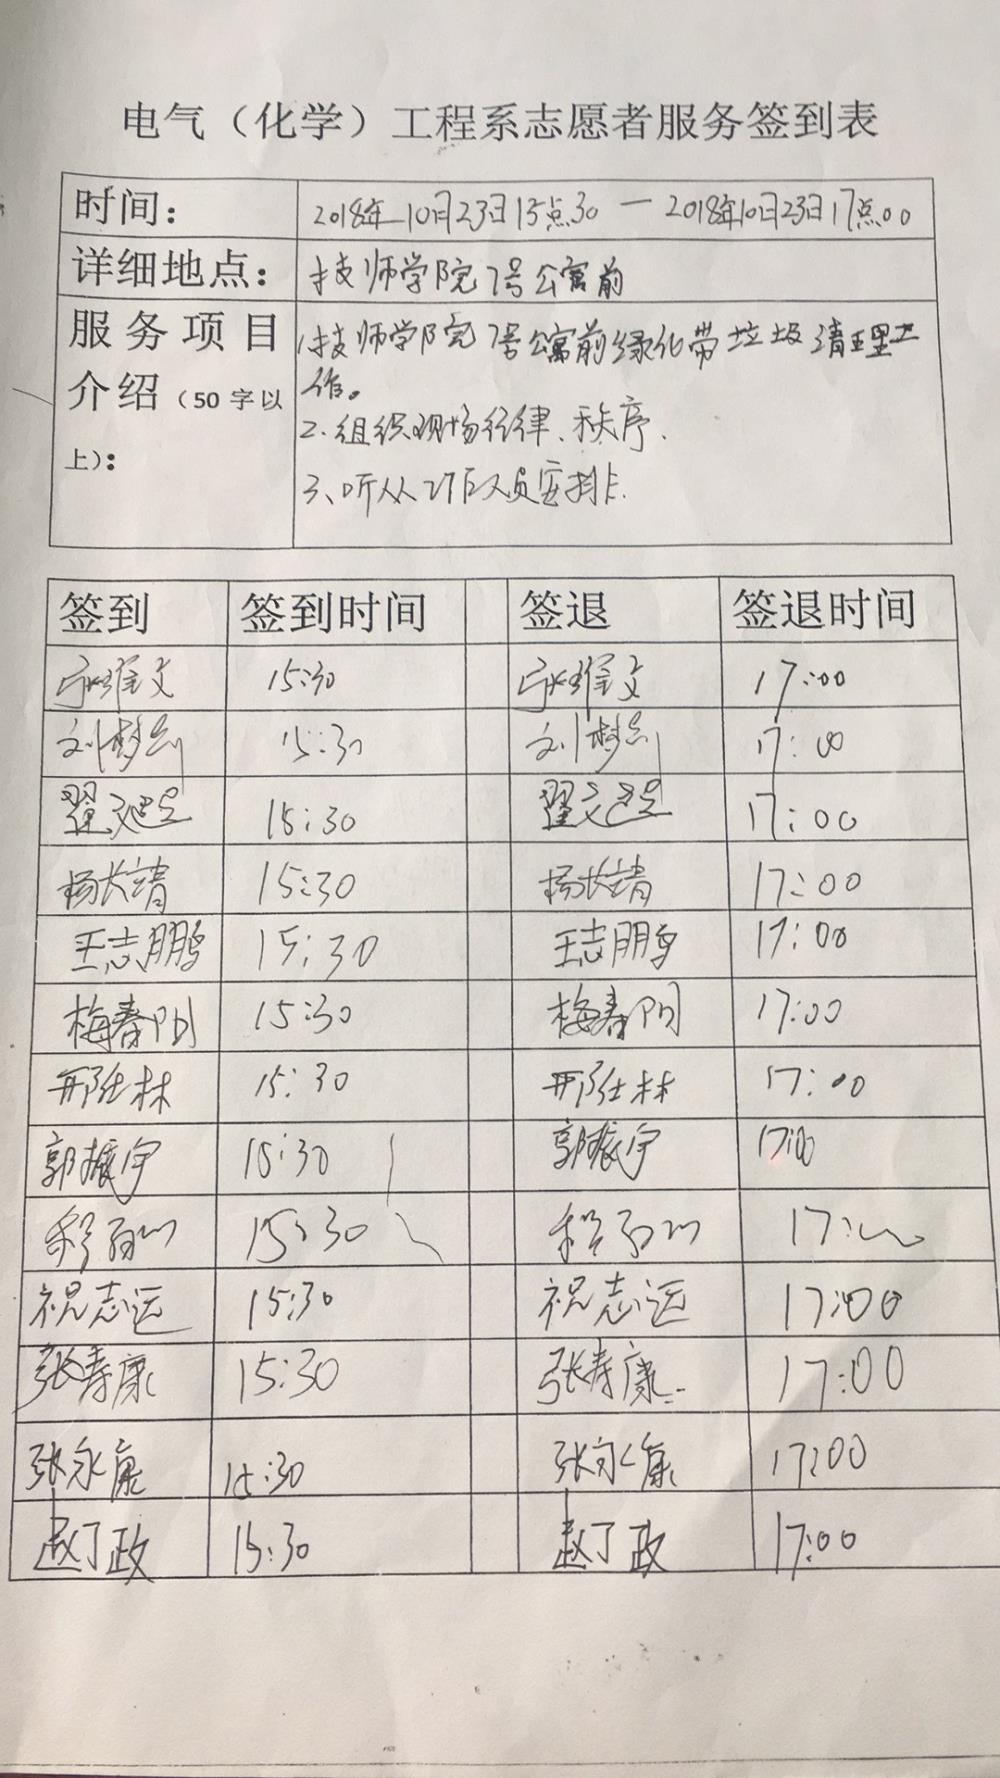 电气（化学）工程系志愿者服务签到表
时间： 2018年10月23日15点30 — 2018年10月23日17点00
详细地点： 技师学院7号公寓前
服务项目介绍（50字以上）：
1、技师学院7号公寓前绿化带垃圾清理工
作。
2、组织现场纪律、秩序、
3、听从工作人员安排。
签到 签到时间 签退 签退时间
15:30 17:00
刘梦剑 15:30 刘梦剑 17:00
翟文迪 15:30 翟文迪 17:00
杨长靖 15:30 杨长靖 17:00
王志鹏 15:30 王志鹏 17:00
梅春阳 15:30 梅春阳 17:00
邢仕林 15:30 邢仕林 17:00
郭振宇 15:30 郭振宇 17:00
15:30 17:
祝志远 15:30 祝志远 17:00
张寿康 15:30 张寿康 17:00
张永康 15:30 张永康 17:00
赵丁政 15:30 赵丁政 17:00